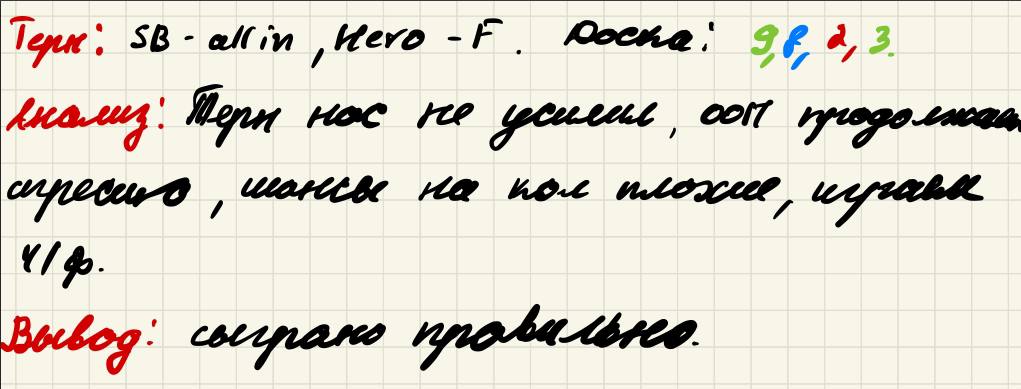 Терн: SB - all in, Hero - F. Доска: 9, 8, 2, 3.
Анализ: Терн нас не усилил, опп продолжает
агрессию, шансы на кол плохие, играем
ч/ф.
Вывод: сыграно правильно.